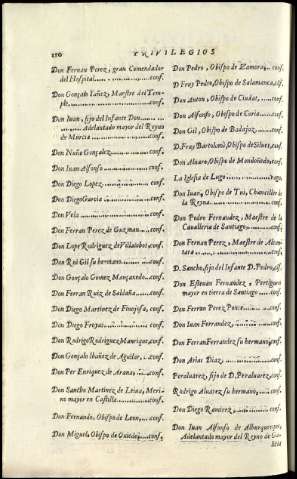 150 PRIVILEGIOS
Don Fernan Perez, gran Comendador
del Hospital conf.
Don Gonçalo Iañez, Maestre del Tem-
ple conf.
Don Iuan, fijo del Infante Don
Adelantado mayor del Reyno
de Murcia conf.
Don Nuño Gonçalez conf.
Don Iuan Alfonso conf.
Don Diego Lopez conf.
Don Diego Garcia conf.
Don Vela conf.
Don Ferran Perez de Guzman conf.
Don Lope Rodriguez de Villalobos conf.
Don Rui Gil su hermano conf.
Don Gonçalo Gomez Mançanedo conf.
Don Ferran Ruiz de Saldaña conf.
Don Diego Martinez de Finojosa, conf.
Don Diego Froyaz conf.
Don Rodrigo Rodriguez Manrique, conf.
Don Gonçalo Ibañez de Aguilar, conf.
Don Per Enriquez de Arana, conf.
Don Sancho Martinez de Leiua, Meri-
no mayor en Castilla conf.
Don Fernando, Obispo de Leon, conf.
Don Miguel, Obispo de Ouiedo, conf.
Don Pedro, Obispo de Zamora, conf.
D. Fray Pedro, Obispo de Salamanca, conf.
Don Anton, Obispo de Ciudad, conf.
Don Alfonso, Obispo de Coria conf.
Don Gil, Obispo de Badajoz conf.
D. Fray Bartolomè, Obispo de Silues, conf.
Don Aluaro, Obispo de Mondoñedo, conf.
La Iglesia de Lugo vaga.
Don Iuan, Obispo de Tui, Chanciller de
la Reyna conf.
Don Pedro Fernandez, Maestre de la
Caualleria de Santiago conf.
Don Fernan Perez, Maestre de Alcan-
tara conf.
D. Sancho, fijo del Infante D. Pedro, conf.
Don Esteuan Fernandez, Pertiguero
mayor en tierra de Santiago conf.
Don Ferran Perez Ponce conf.
Don Iuan Ferrandez conf.
Don Ferran Ferrandez su hermano, conf.
Don Arias Diaz conf.
Peraluarez, fijo de D. Peraluarez, conf.
Rodrigo Aluarez su hermano, conf.
Don Diego Ramirez conf.
Don Iuan Alfonso de Alburquerque,
Adelantado mayor del Reyno de Ga-